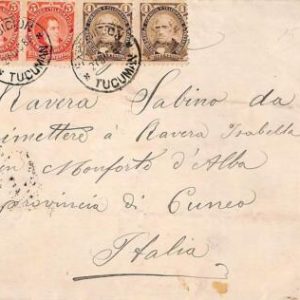 5 5 1 1
TUCUMAN
TUCUMAN
Ravera Sabino da
rimettere à Ravera Isabella
Monforte d'Alba
provincia di Cuneo
Italia